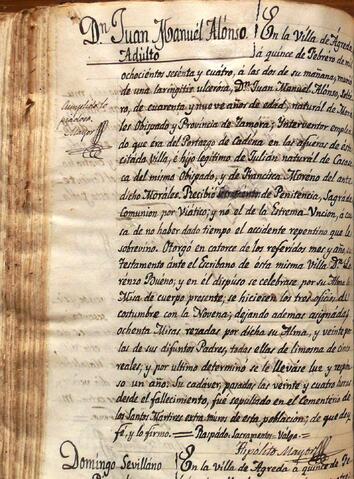 Dn. Juan Manuel Alonso
Adulto
En la Villa de Agreda
á quince de Febrero de mil
ochocientos sesenta y cuatro, á las dos de su mañana, murió
de una laringitis ulcerosa, Dn. Juan Manuel Alonso, Solte-
ro, de cuarenta y nueve años de edad, natural de Mora-
les Obispado y Provincia de Zamora; Interventor emplea-
do que era del Portazgo de Cadena en las afueras de esta
citada Villa, é hijo legitimo de Julian natural de
ca del mismo Obispado, y de Francisca Moreno del ante
dicho Morales. Recibió de Penitencia, Sagrada
Comunion por Viático; y no el de la Extrema-Uncion, á cau-
sa de no haber dado tiempo el accidente repentino que le
sobrevino. Otorgó en catorce de los referidos mes y año su
Testamento ante el Escribano de esta misma Villa Dn. Lo-
renzo Bueno; y en él dispuso se celebrase por su Alma la
Misa de cuerpo presente; se hiciesen los tres oficios de
costumbre con la Novena; dejando ademas asignadas
ochenta Misas rezadas por dicha su Alma, y veinte por
las de sus difuntos Padres, todas ellas de limosna de cinco
reales; y por ultimo determinó se le llevase luz y repon-
so un año. Su cadaver, pasadas las veinte y cuatro horas
desde el fallecimiento, fue sepultado en el Cementerio de
los Santos Martires extra-muros de esta poblacion; de que doy
fé, y lo firmo. = Raspado. Sacramento. Valga. =
Hipolito Mayor
Cumplido lo
piadoso.
Mayor
Domingo Sevillano
En la Villa de Agreda á quince de Fe-